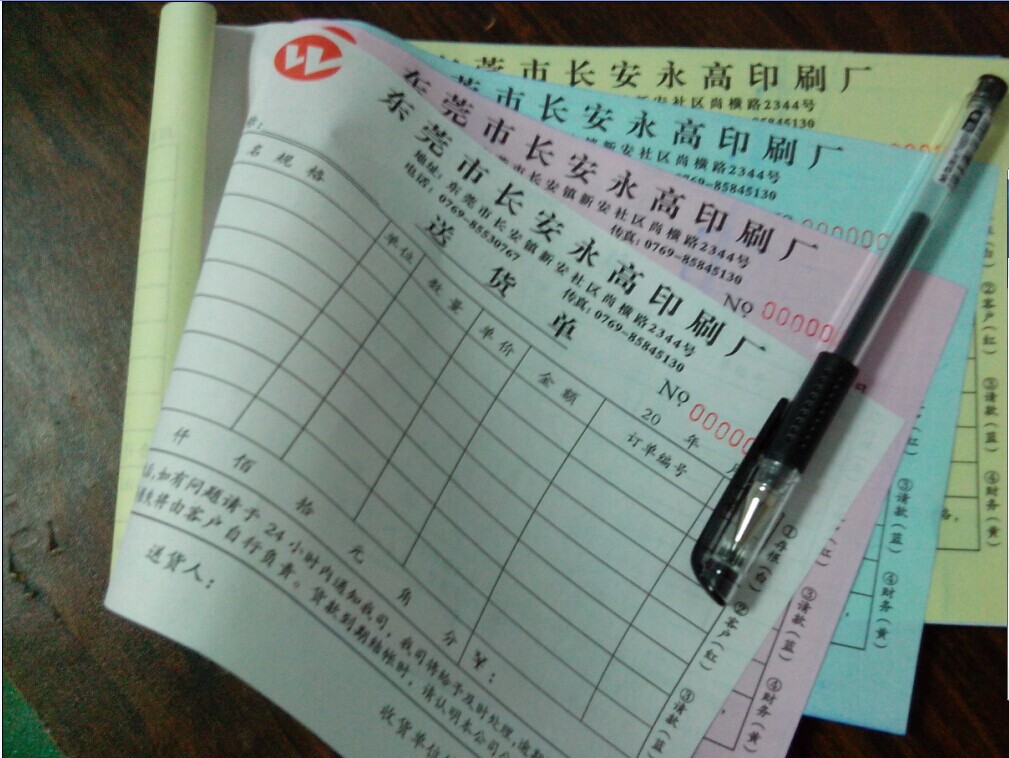 东莞市长安永高印刷厂
安社区尚横路2344号
85845130
东莞市长安永高印刷厂
镇新安社区尚横路2344号
0769-85845130
000000
东莞市长安永高印刷厂
长安镇新安社区尚横路2344号
传真: 0769-85845130
No 00000
东莞市长安永高印刷厂
地址: 东莞市长安镇新安社区尚横路2344号
电话: 0769-85530767 传真: 0769-85845130
送货单
No 00000
20 年 月
名规格 单位 数量 单价 金额 订单编号
仟 佰 拾 元 角 分 ¥:
如有问题请于24小时内通知我司, 我司将给予及时处理,
失将由客户自行负责。货款到期结帐时, 请认明本公司
送货人: 收货单位
①存根(白) ②客户(红) ③请款(蓝)
(红) ③请款(蓝) ④财务(黄)
(红) ③请款(蓝) ④财务(黄)
(白) ②客户(红) ③请款(蓝) ④财务(黄)